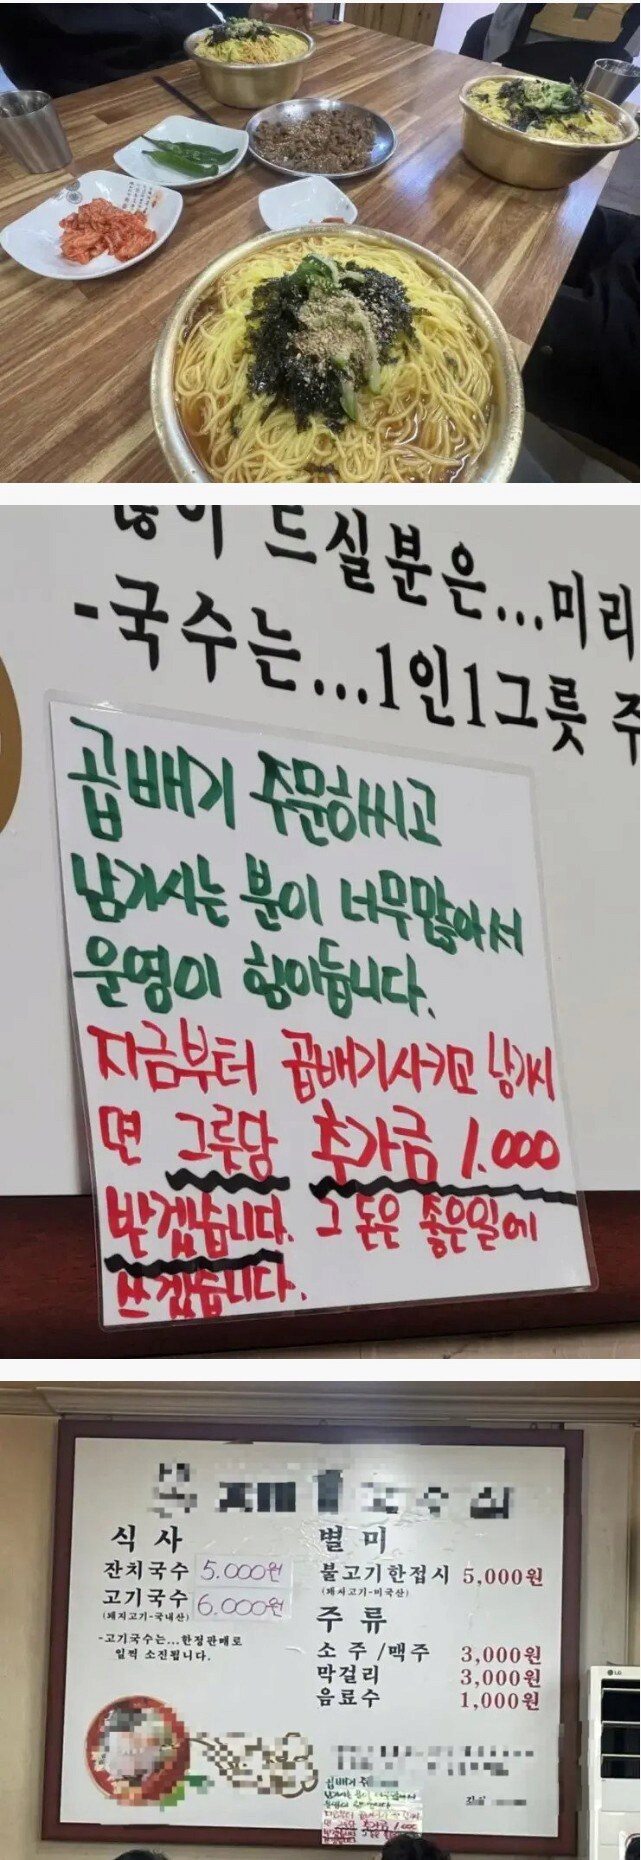 많이 드실분은...미리
-국수는...1인1그릇 주
곱배기 주문하시고
남기시는 분이 너무많아서
운영이 힘이듭니다.
지금부터 곱배기시키고 남기시
면 그릇당 추가금 1.000
받겠습니다. 그 돈은 좋은일에
쓰겠습니다.
식 사
잔치국수 5.000원
고기국수 6.000원
(돼지고기-국내산)
-고기국수는...한정판매로
일찍 소진됩니다.
별 미
불고기한접시 5,000원
(돼지고기-미국산)
주 류
소 주 /맥주 3,000원
막걸리 3,000원
음료수 1,000원
LG
곱배기 주
남기시는 분이 너무많아서
지금부터 곱배기
면 그릇당 추가금 1.000